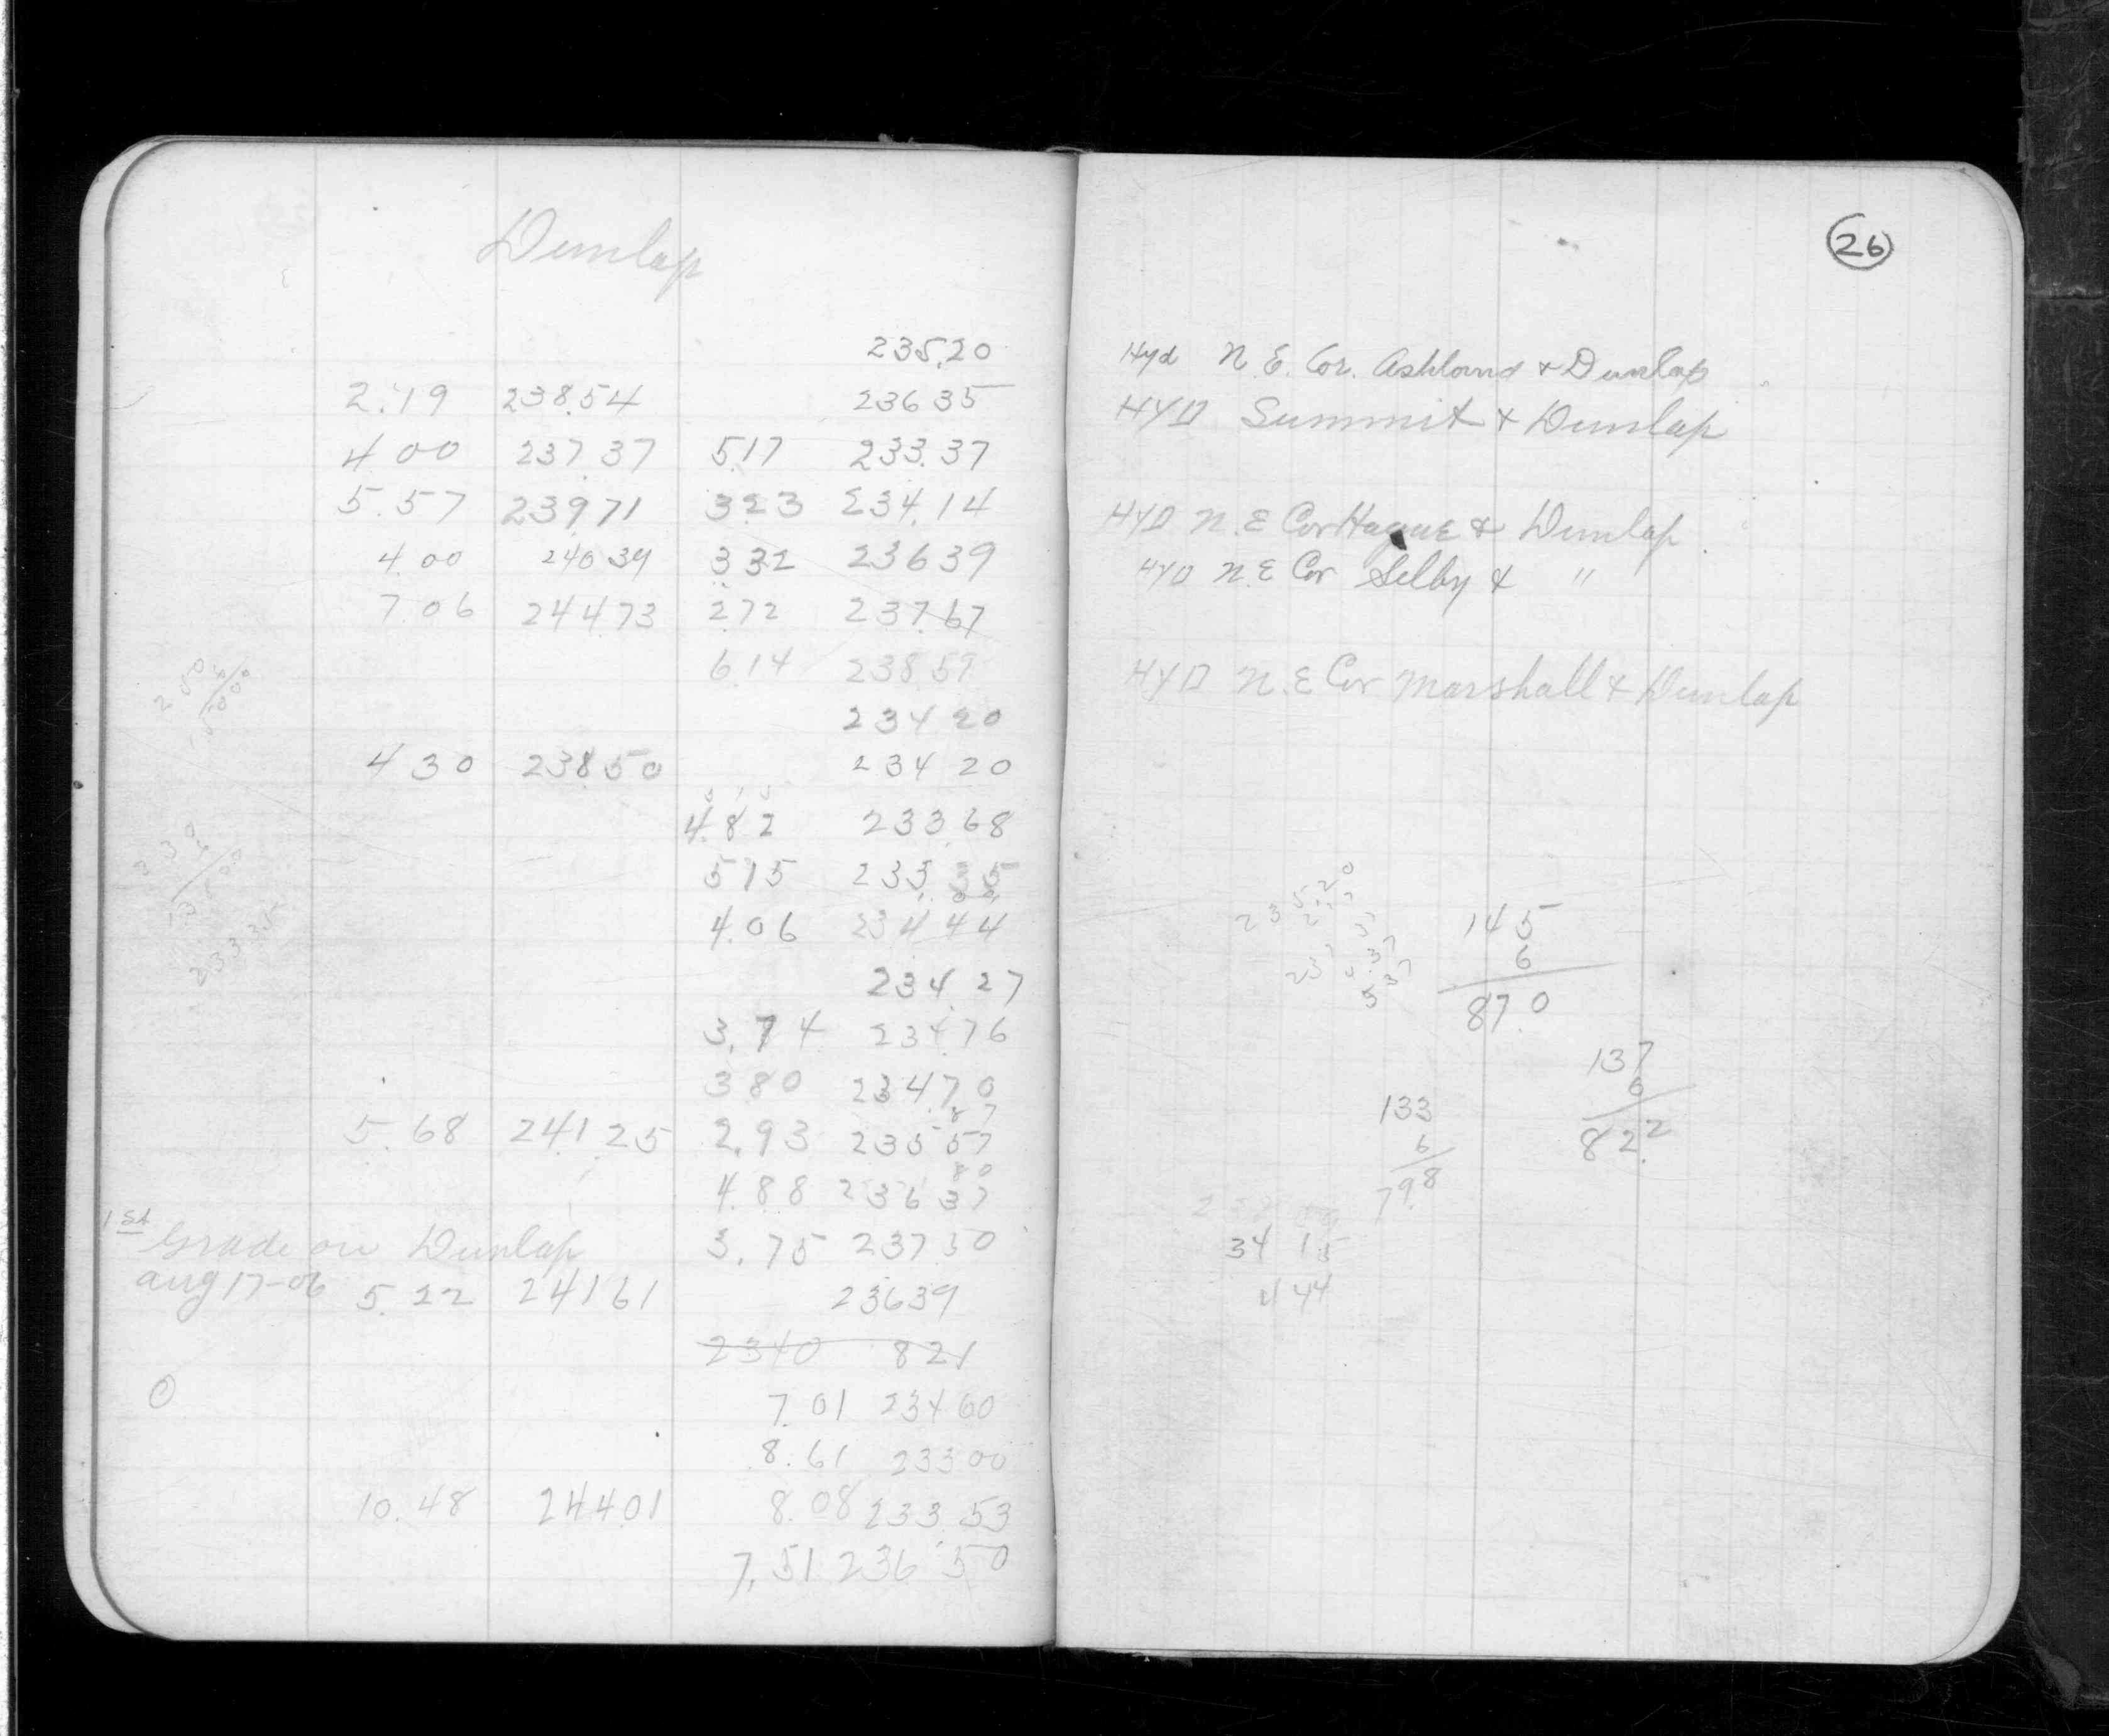 Dunlap
235.20
2.19 238.54 236 35
4 00 237 37 5.17 233.37
5.57 239 71 323 234.14
4 00 240 39 332 236 39
7 06 244 73 272 237.67
6.14 238 59
234 20
4 30 238 50 234 20
4.82 233.68
5 15 233. 35
4.06 234 44
234.27
3.74 234 76
3 80 234.70
87
5.68 241 25 2.93 235 57
80
4.88 236 37
1st Grade on Dunlap 3.75 237 50
Aug 17-06 5.22 241 61 236 39
2340 821
0 7.01 234 60
8.61 233 00
10.48 244.01 8.08 233.53
7.51 236 50
26
Hyd N. E. Cor. Ashland & Dunlap
HYD Summit & Dunlap
HYD N.E Cor Hague & Dunlap
HYD N.E Cor Selby & "
HYD N.E Cor Marshall & Dunlap
235.20
145
6
87.0
137
6
82.2
133
6
79.8
34 15
4 44